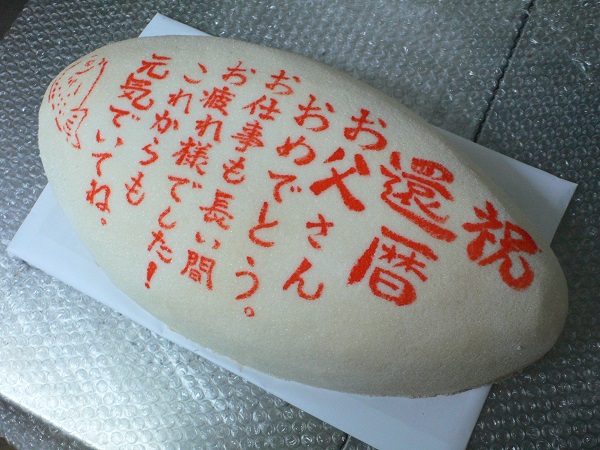 祝
還暦
お父さん
おめでとう。
お仕事も長い間
お疲れ様でした!
これからも
元気でいてね、